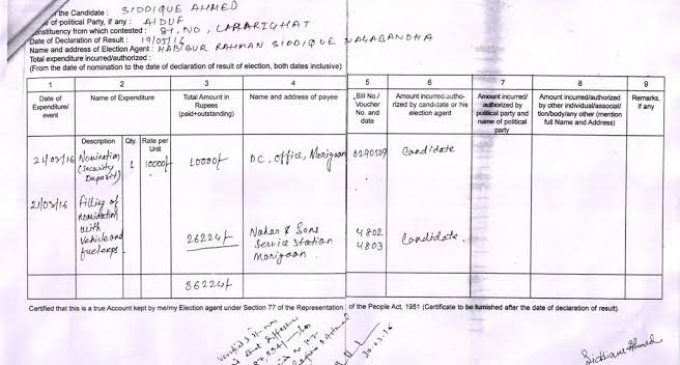 of the Candidate : SIDDIQUE AHMED
of political Party, if any : AIDUF
constituency from which contested : 81, NO, LAHARIGHAT
Date of Declaration of Result : 19/05/16
Name and address of Election Agent : HABIBUR RAHMAN SIDDIQUE NAGABANDHA
Total expenditure incurred/authorized :
(From the date of nomination to the date of declaration of result of election, both dates inclusive)
1 2 3 4 5 6 7 8 9
Date of Expenditure/ event
Name of Expenditure
Total Amount in Rupees (paid+outstanding)
Name and address of payee
Bill No./ Voucher No. and date
Amount incurred/autho- rized by candidate or his election agent
Amount incurred/ authorized by political party and name of political party
Amount incurred/authorized by other individual/associa/ tion/body/any other (mention full Name and Address)
Remarks, if any
Description Qty. Rate per Unit
21/03/16 Nomination (Security Deposit) 1 10000/- 10000/- D.C, Office, Morigaon 0290509 Candidate
21/03/16 Filling of nomination with vehicle and fuel exps. 26224/- Nahar & Sons Service Station Morigaon 4802 4803 Candidate
36224/-
Certified that this is a true Account kept by me/my Election agent under Section 77 of the Representation of the People Act, 1951 (Certificate to be furnished after the date of declaration of result)
30-03-16
Siddique Ahmed